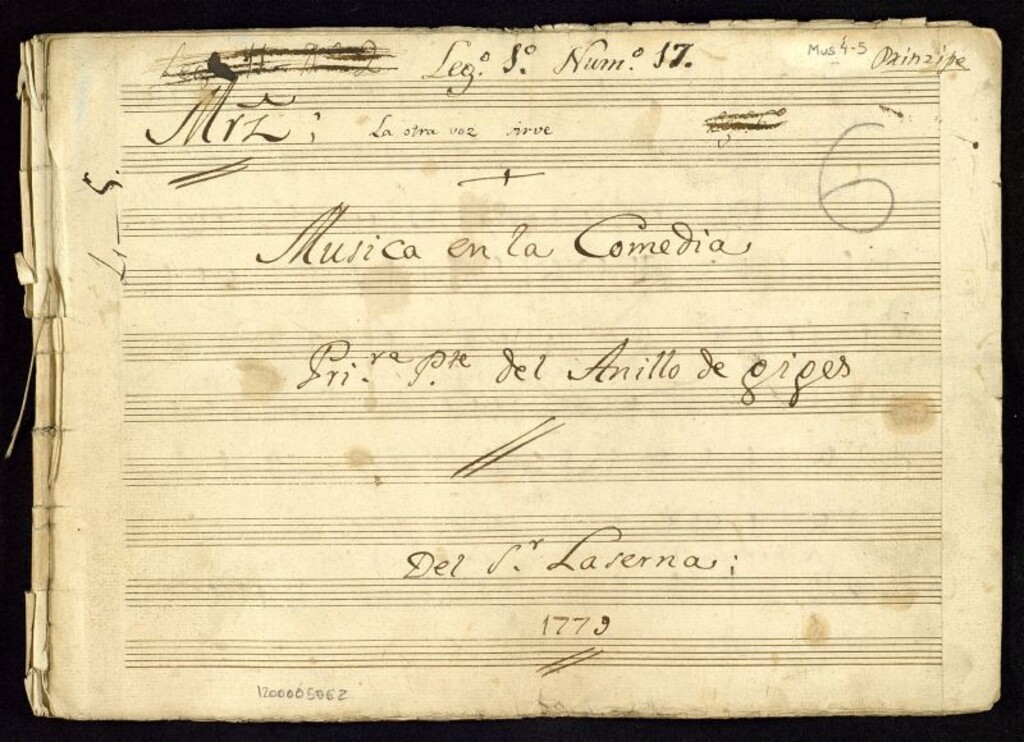 Leg.º 1.º Num.º 17. Mus 4-5 Prinzipe
Mrz̃; La otra voz sirve
6
Musica en la Comedia
Pri.ra P.te del Anillo de giges
Del S.r Laserna;
1779
1200005062